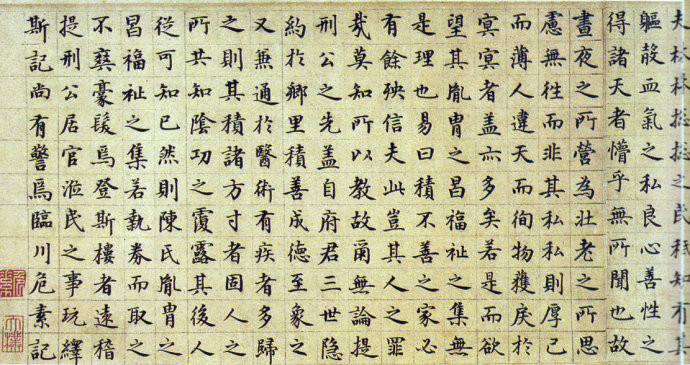 夫林林揔揔之民秖知有其
軀殼血氣之私良心善性之
得諸天者懵乎無所聞也故
晝夜之所營為壯老之所思
慮無往而非其私私則厚己
而薄人違天而徇物獲戾於
冥冥者盖亦多矣若是而欲
望其胤胄之昌福祉之集無
是理也易曰積不善之家必
有餘殃信夫此豈其人之罪
㦲莫知所以教故爾無論提
刑公之先盖自府君三世隐
約於鄉里積善成德至象之
又兼通於醫術有疾者多歸
之則其積諸方寸者固人之
所共知陰功之覆露其後人
從可知已然則陳氏胤胄之
昌福祉之集若執券而取之
不爽豪髮焉登斯樓者遠稽
提刑公居官涖民之事玩繹
斯記尚有警焉臨川危素記